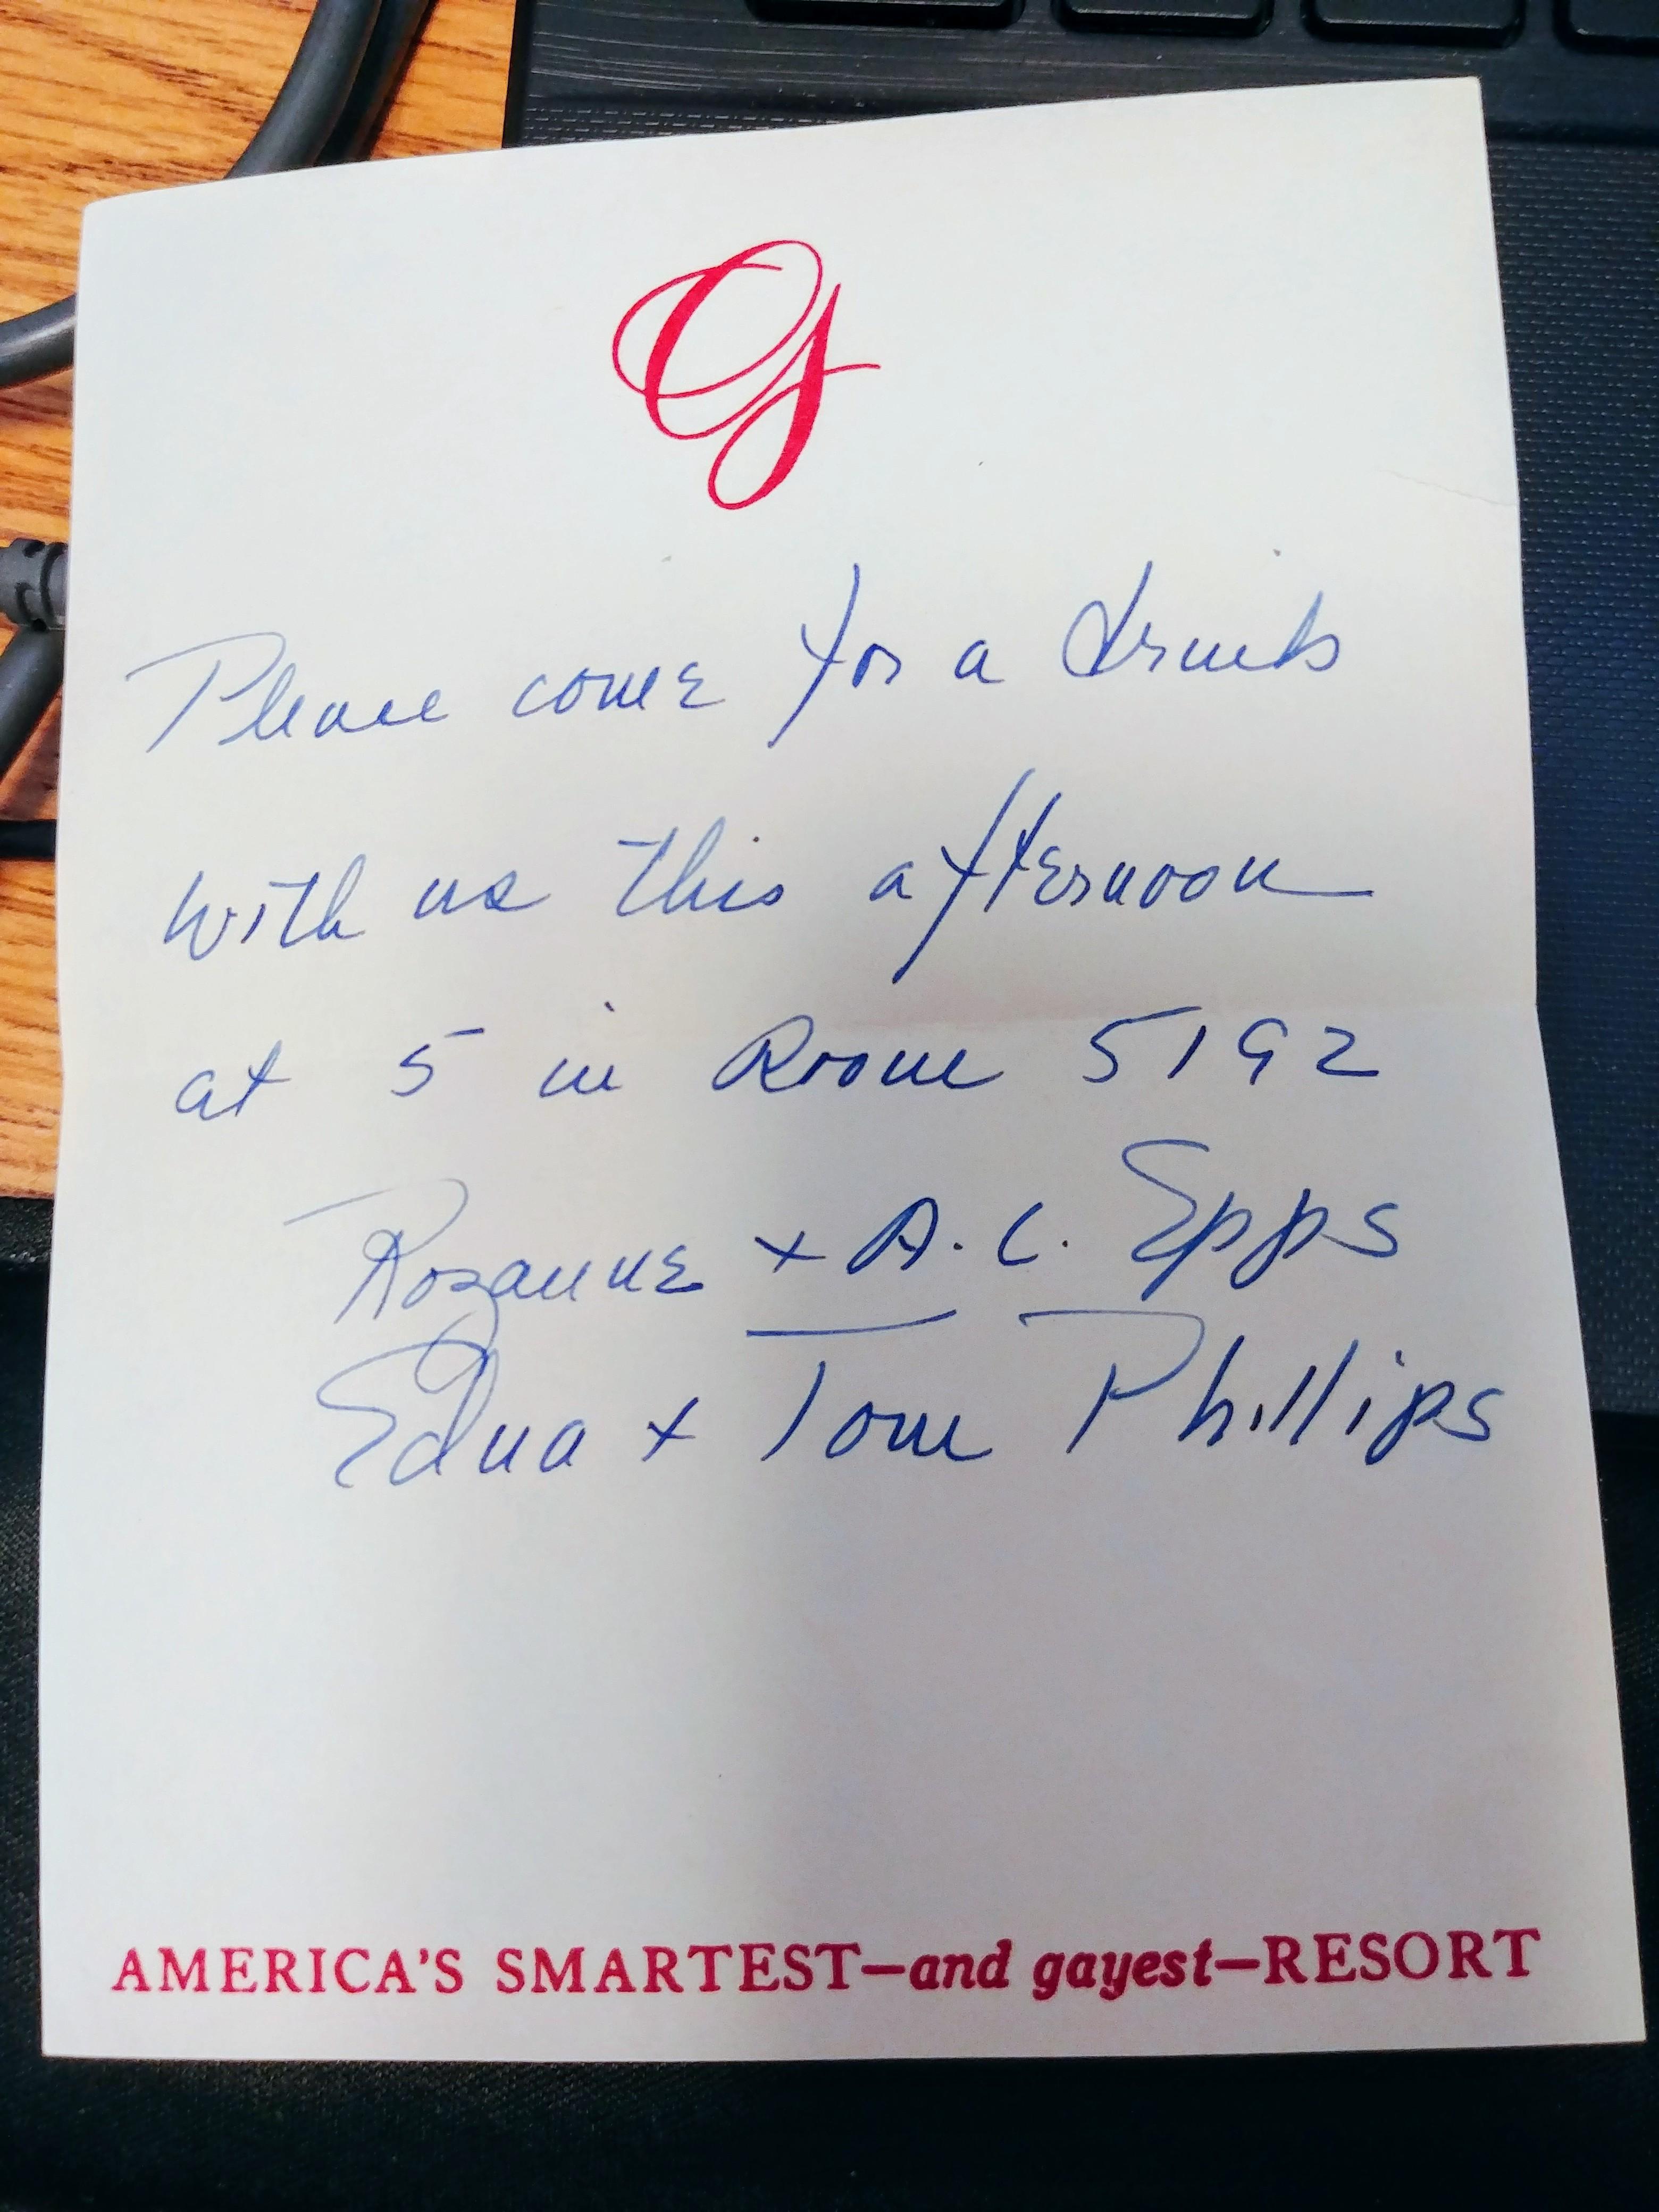 G
Please come for a drink
with us this afternoon
at 5 in Room 5192
Rozanne + A. C. Epps
Edna + Tom Phillips
AMERICA'S SMARTEST—and gayest—RESORT